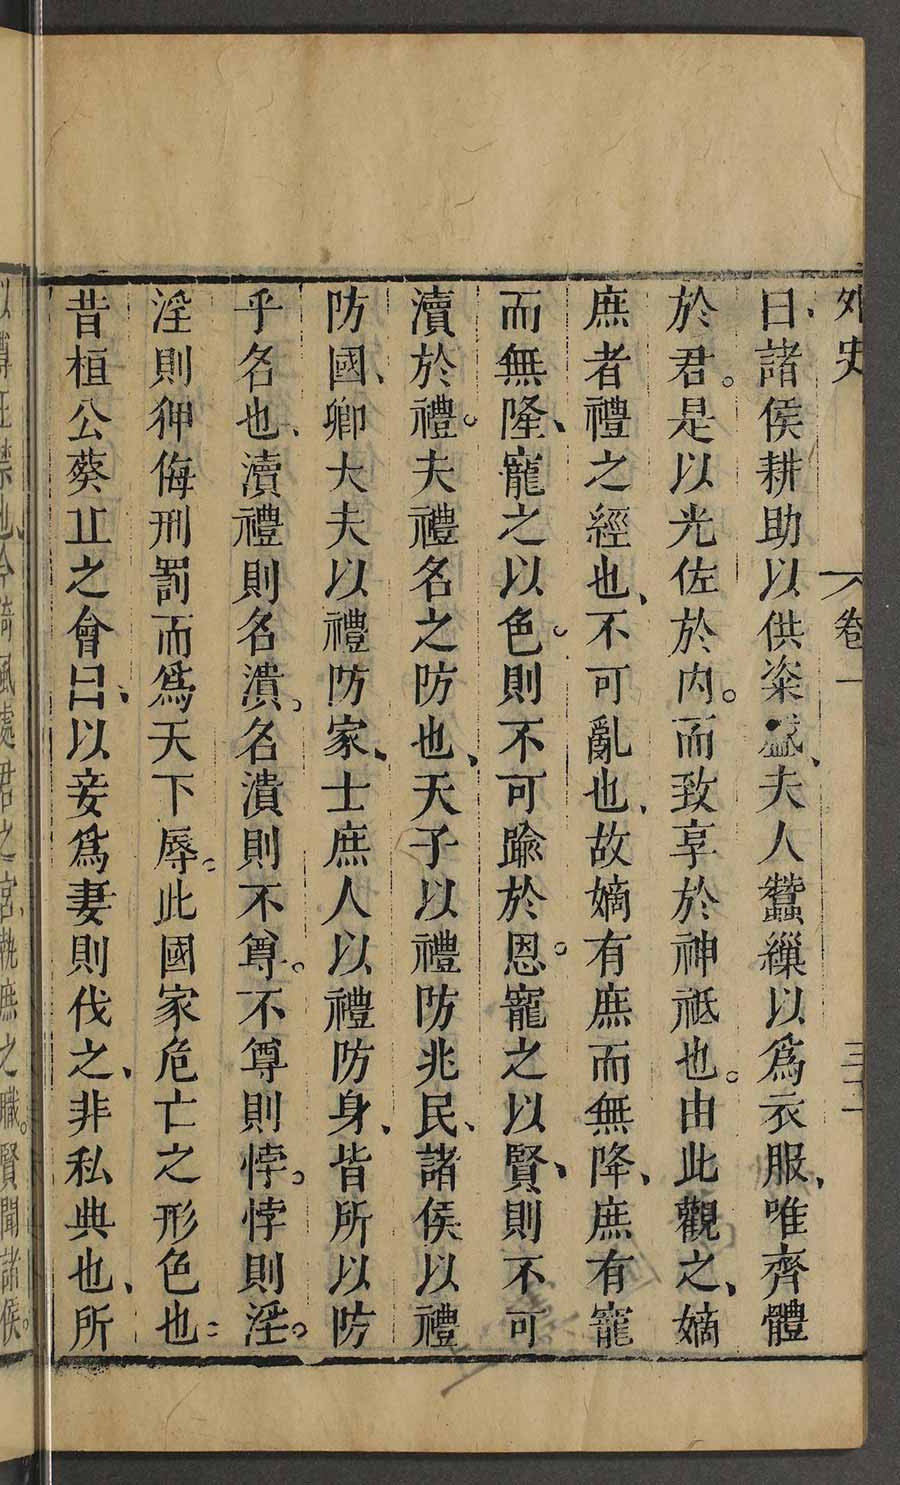 外史 卷一 三二
曰、諸侯耕助以供粢盛、夫人蠶繅以爲衣服、唯齊體
於君。是以光佐於內。而致享於神祗也。由此觀之、嫡
庶者禮之經也、不可亂也、故嫡有庶而無降、庶有寵
而無隆、寵之以色。則不可踰於恩。寵之以賢、則不可
瀆於禮。夫禮名之防也、天子以禮防兆民、諸侯以禮
防國、卿大夫以禮防家、士庶人以禮防身、皆所以防
乎名也、瀆禮則名潰、名潰則不尊。不尊則悖。悖則淫。
淫則狎侮刑罰而爲天下辱。此國家危亡之形色也
昔桓公葵丘之會曰、以妾爲妻則伐之、非私典也、所
執庶之職。賢聞諸侯。